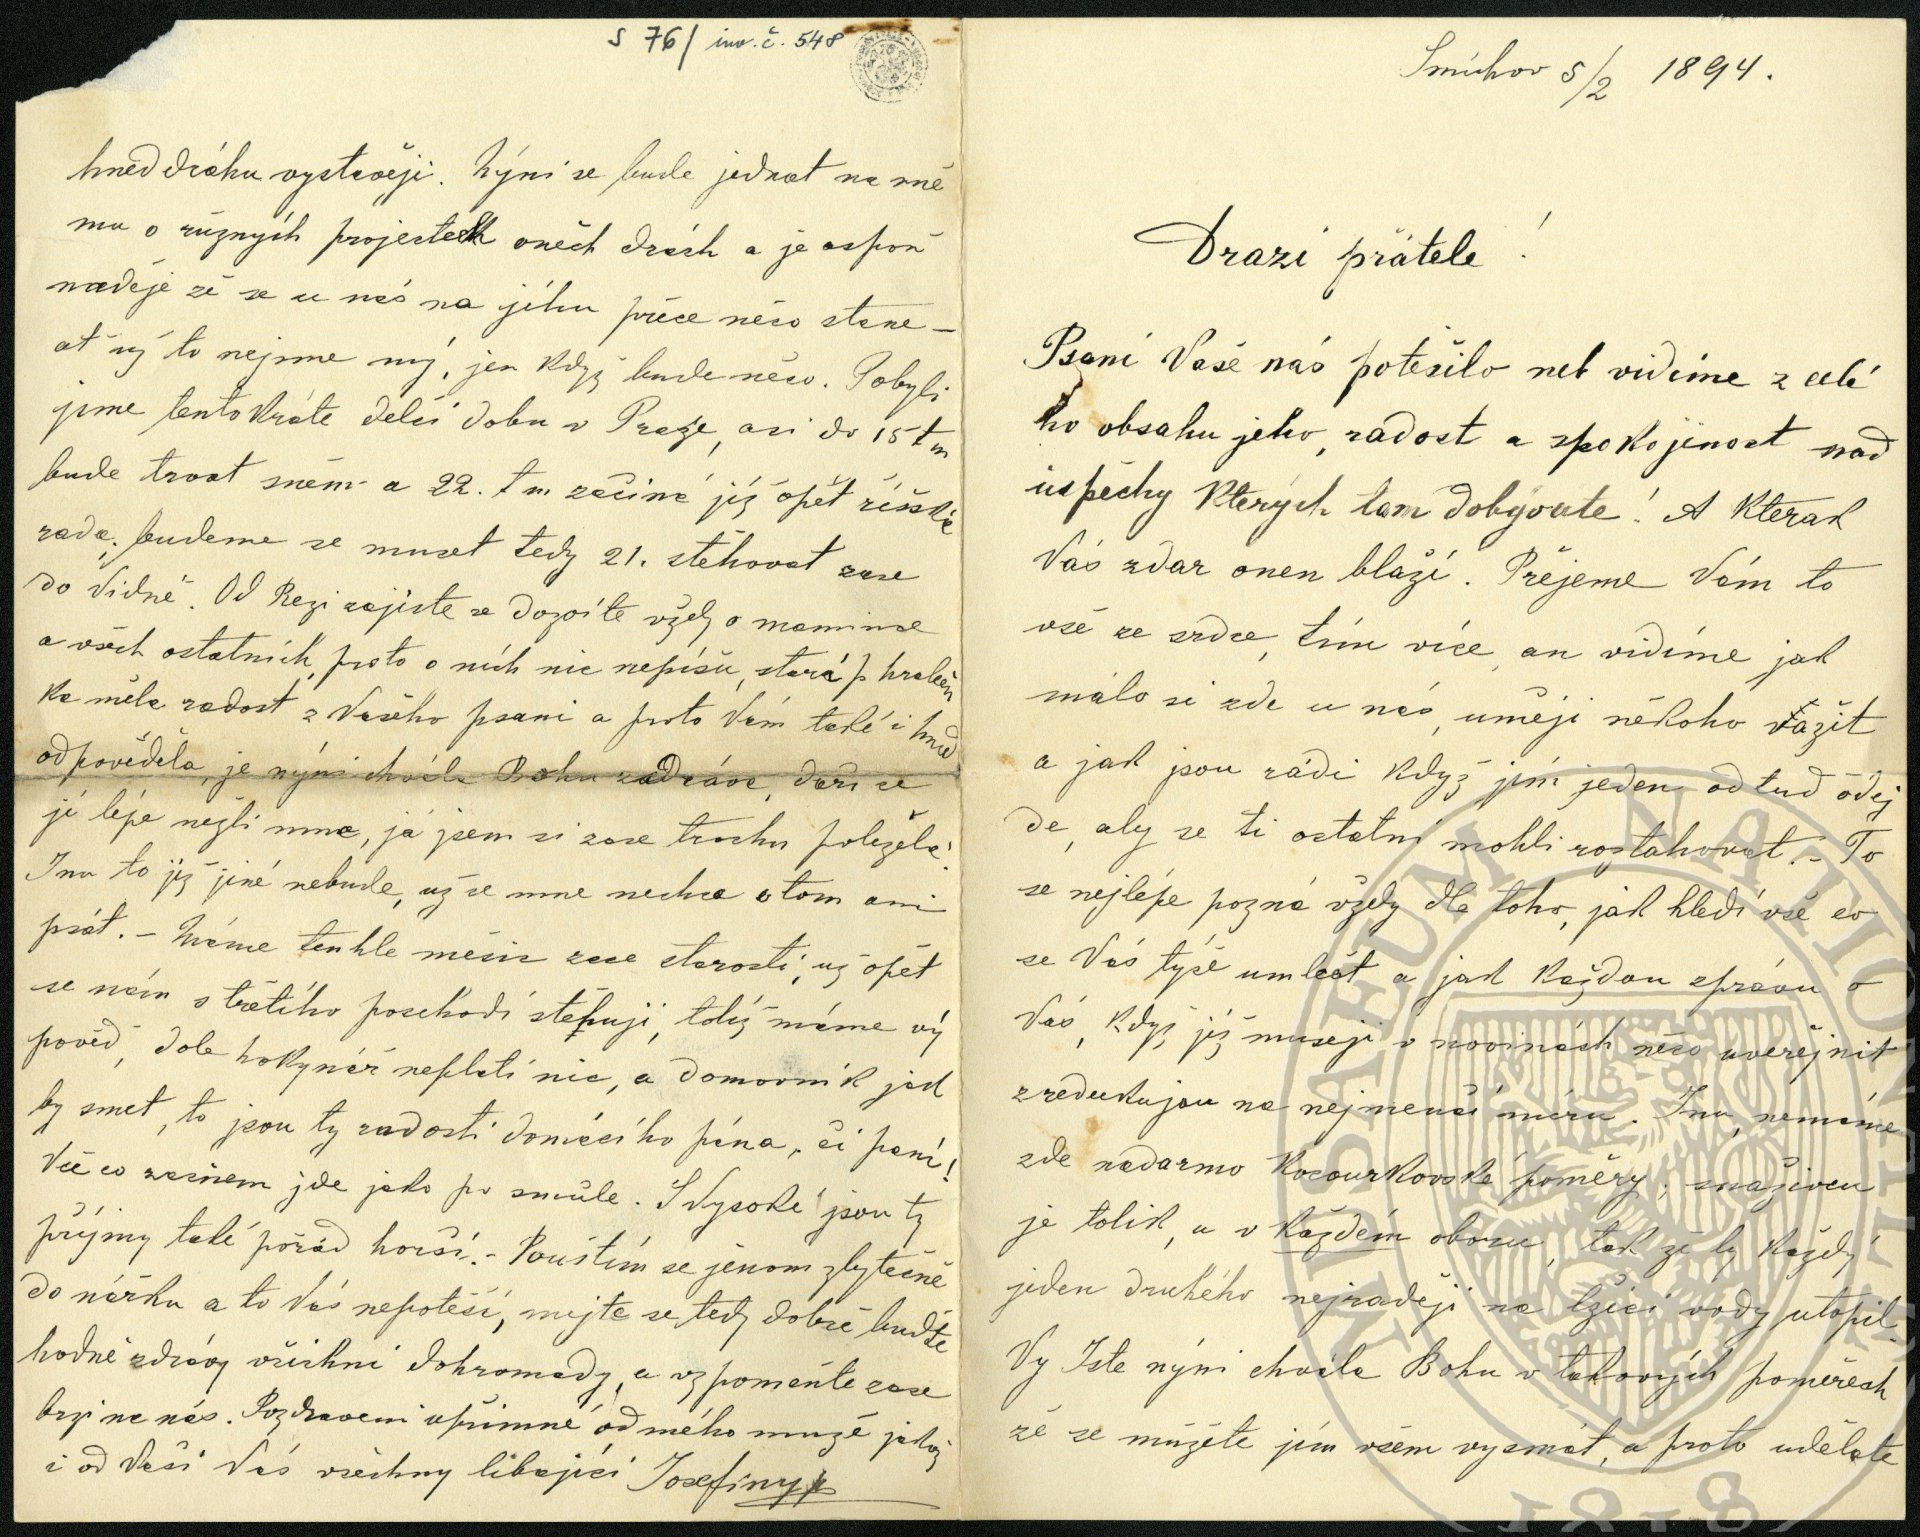 Smíchov 5/2 1894.
Drazí přátelé!
Psaní Vaše nás potešilo neb vidíme z celé
ho obsahu jeho, radost a spokojenost nad
úspěchy kterých tam dobýváte! A kterak
Vás zdar onen blaží. Přejeme Vám to
vše ze srdce, tím více, an vidíme jak
málo si zde u nás, umějí někoho vážit
a jak jsou rádi když jím jeden od tud odej
de, aby se ti ostatní mohli roztahovat. – To
se nejlépe pozná vždy dle toho, jak hledí vše co
se Vás týče umlčet a jak každou zprávu o
Vás, když již musejí v novinách něco uveřejnit
zredukujou na nejmenší míru. Inu, nemáme
zde nadarmo Kocourkovské poměry; snaživců
je tolik, a v každém oboru, tak že by každý
jeden druhého nejraději na lžíci vody utopil.
Vy Jste nýni chvála Bohu v takových poměrech
že se můžete jím všem vysmát, a proto uděláte
S 76/ inv. č. 548
hned dráhu vystavěji. Nýni se bude jednat na sně
mu o různých projektech oněch drách a je aspoň
naděje že se u nás na jihu přece něco stane –
ať už to nejsme my, jen když bude něco. Pobyli
jsme tentokráte delší dobu v Praze, asi do 15 t m
bude trvat sněm a 22. t m začíná již opět říšská
rada; budeme se muset tedy 21. stěhovat zase
do Vídně. Od Rezi zajiste se dozvíte vždy o mamince
a všech ostatních, proto o ních nic nepíšu, stará p hraběn
ka měla radost z Vašeho psaní a proto Vám také i hned
odpověděla, je nýni chvála Bohu zadráva, daří se
jí lépe nežli mne, já jsem si zase trochu poležela.
Inu to již jiné nebude, už se mne nechce o tom ani
psát. – Máme tenhle měsíc zase starosti, už opět
se nám s třetího poschodí stěhují, totiž máme vý
pověď, dole hokynář neplatí nic, a domovník jak
by smet, to jsou ty radosti domácího pána, či paní!
Vše co začnem jde jako po smůle. S Vysoké jsou ty
příjmy také pořád horší. – Pouštím se jenom zbytečně
do nářku a to Vás nepotěší, mějte se tedy dobře buďte
hodně zdrávy všichni dohromady, a vzpomeňte zase
brzi na nás. Pozdravení upřímné od mého muže jakož
i od Vaší Vás všechny líbající Josefiny
MUSAEUM NATIONALE
1818